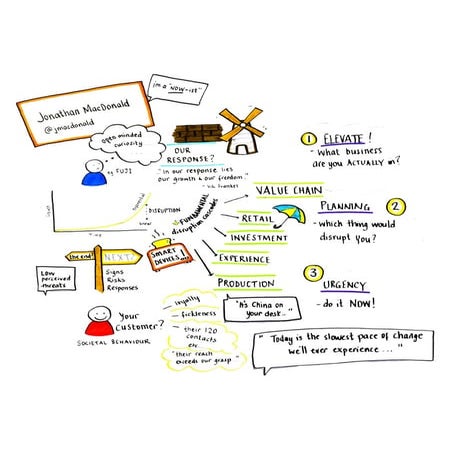 Jonathan MacDonald
@jmacdonald
i'm a "NOW-ist"
open minded
curiosity
eg FUJI
OUR
RESPONSE?
"In our response lies
our growth & our freedom"
- Vik Frankel
DISRUPTION
Time
FUNDAMENTAL
disruption cascades
SMART
DEVICES...
VALUE CHAIN
RETAIL
INVESTMENT
EXPERIENCE
PRODUCTION
the end?
NEXT?
Signs
Risks
Responses
Low
perceived
threats
Your
Customer?
SOCIETAL BEHAVIOUR
loyalty
fickleness
their 120
contacts
etc
"their reach
exceeds our grasp"
"It's China on
your desk.."
1 ELEVATE!
- What business
are you ACTUALLY in?
PLANNING 2
- which thing would
disrupt You?
3 URGENCY
- do it NOW!
"Today is the slowest pace of change
we'll ever experience..."